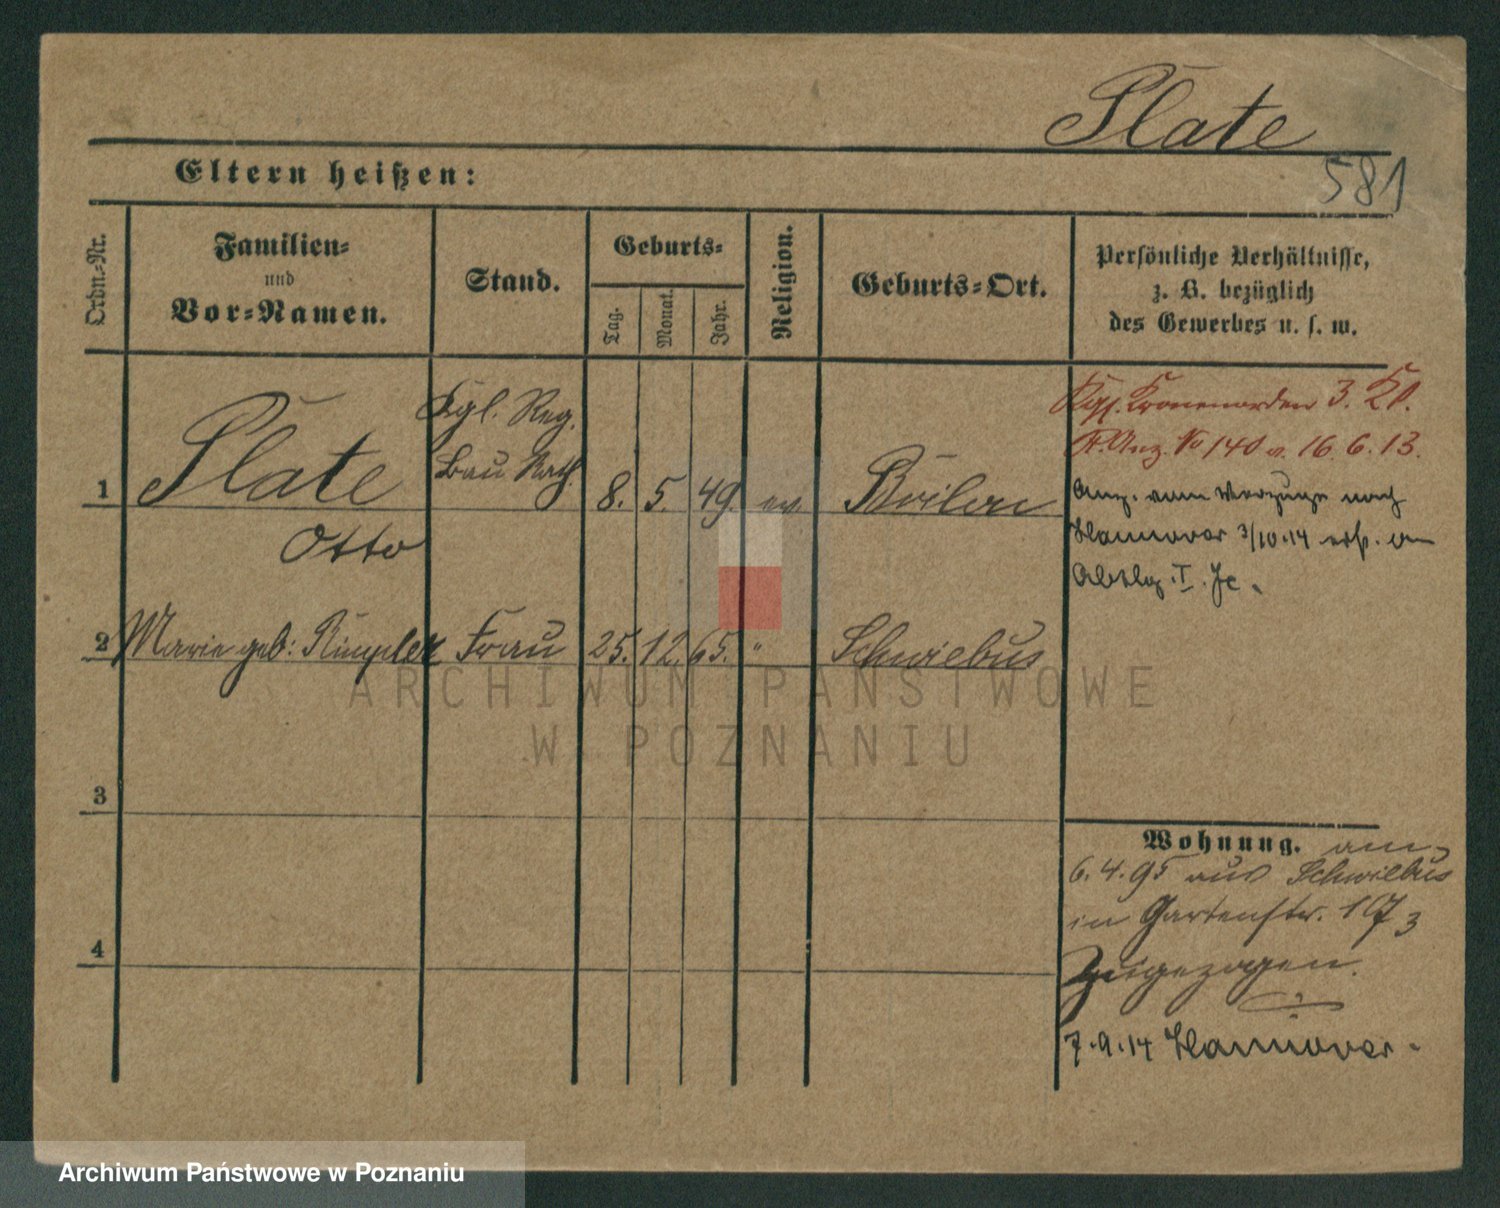 Plate
581
Eltern heißen:
Ordn.-Nr.
Familien-
und
Vor-Namen.
Stand.
Geburts-
Tag.
Monat.
Jahr.
Religion.
Geburts-Ort.
Persönliche Verhältnisse,
z. B. bezüglich
des Gewerbes u. s. w.
1
Plate
Otto
Kgl. Reg.
Bau Rath
8. 5. 49. ev.
Kgl. Kronenorden 3. Kl.
R. Anz. No 140 v. 16. 6. 13.
Anz. vom Verzuge nach
Hannover 3/10.14 an
Abtlg. I.
2
Marie geb: Rimpler
Frau
25. 12. 65. "
Schwiebus
3
4
Wohnung. am
6.4.95 aus Schwiebus
in Gartenstr. 3
zugezogen.
7.9.14 Hannover.
ARCHIWUM PAŃSTWOWE
W POZNANIU
Archiwum Państwowe w Poznaniu